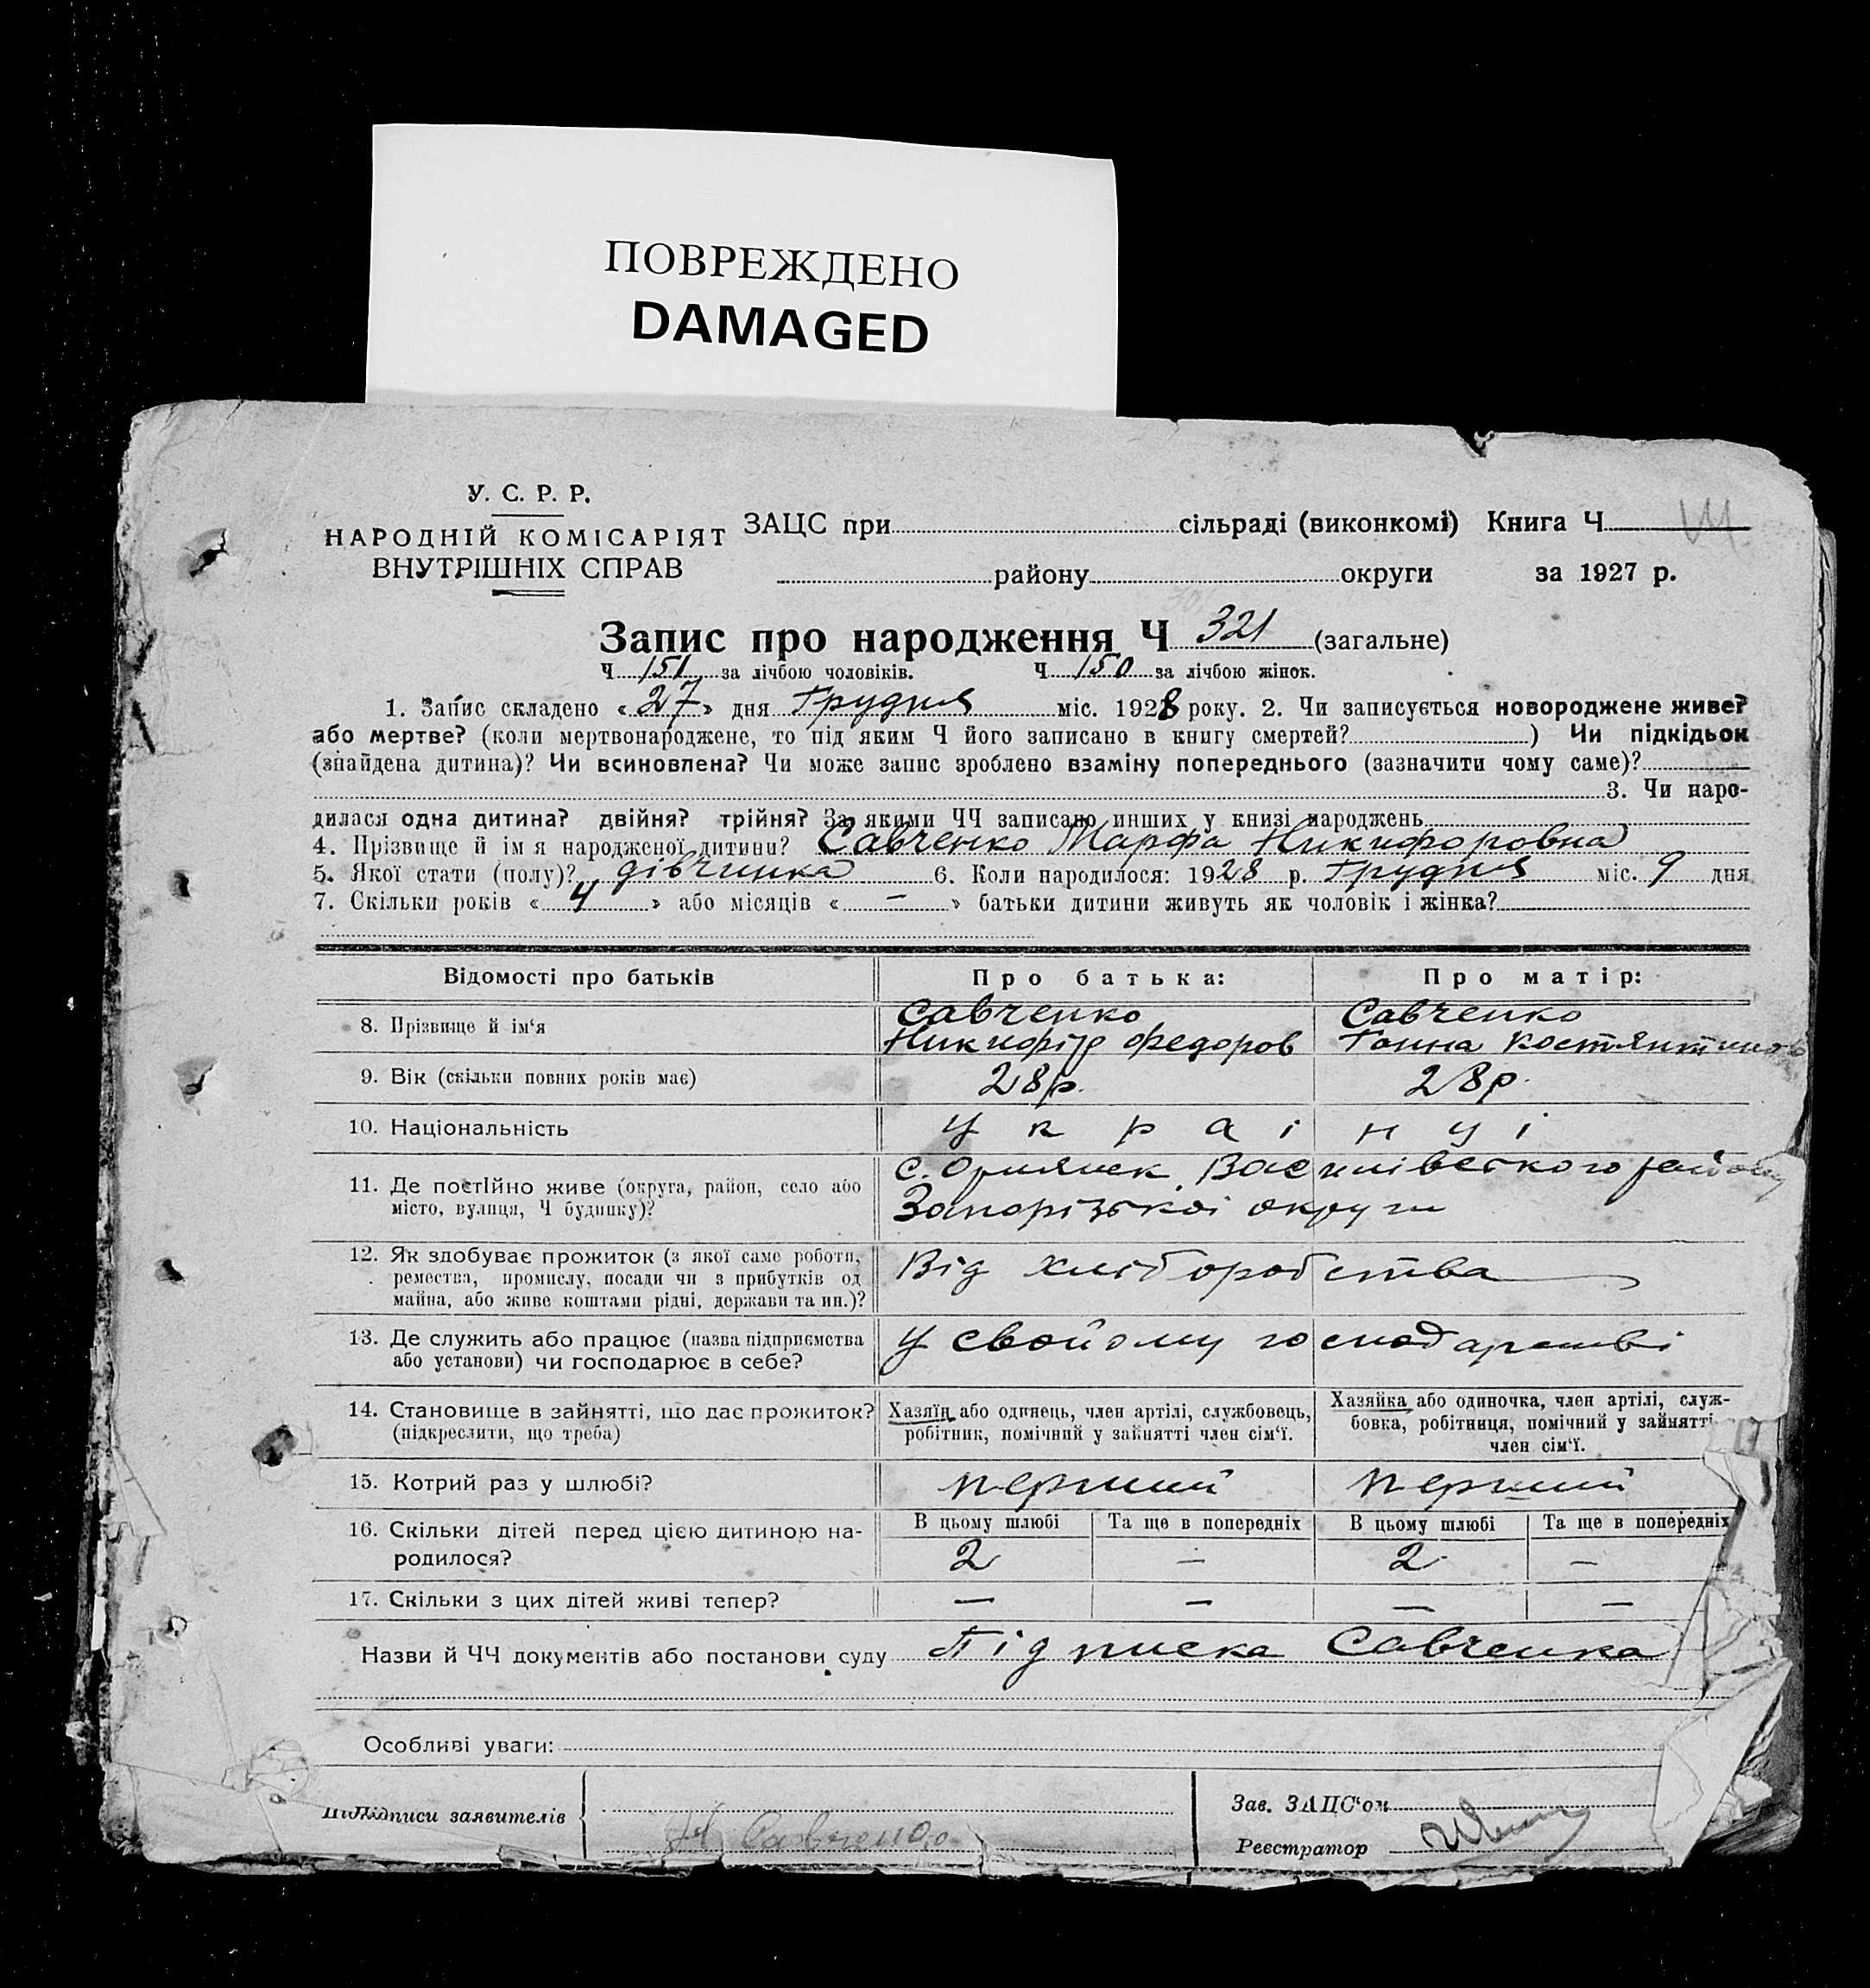 ПОВРЕЖДЕНО
DAMAGED
У. С. Р. Р.
НАРОДНІЙ КОМІСАРІЯТ
ВНУТРІШНІХ СПРАВ
ЗАЦС при сільраді (виконкомі) Книга Ч
району округи за 1927 р.
Запис про народження Ч 321 (загальне)
Ч 151 за лічбою чоловіків. Ч 150 за лічбою жінок.
1. Запис складено « 27 » дня Грудня міс. 1928 року. 2. Чи записується новороджене живе?
або мертве? (коли мертвонароджене, то під яким Ч його записано в книгу смертей? ) Чи підкідьок
(знайдена дитина)? Чи всиновлена? Чи може запис зроблено взаміну попереднього (зазначити чому саме)?
3. Чи наро-
дилася одна дитина? двійня? трійня? За якими ЧЧ записано инших у книзі народжень
4. Прізвище й ім я народженої дитини? Савченко Марфа Никифоровна
5. Якої стати (полу)? дівчинка 6. Коли народилося: 1928 р. Грудня міс. 9 дня
7. Скільки років « 4 » або місяців « — » батьки дитини живуть як чоловік і жінка?
Відомості про батьків Про батька: Про матір:
8. Прізвище й ім‘я Савченко Никифір Федоров Савченко Ганна
9. Вік (скільки повних років має) 28 р. 28 р.
10. Національність Українці
11. Де постійно живе (округа, район, село або
місто, вулиця, Ч будинку)?
Василівського району
Запорізької округи
12. Як здобуває прожиток (з якої саме роботи,
ремества, промислу, посади чи з прибутків од
майна, або живе коштами рідні, держави та ин.)?
Від хліборобства
13. Де служить або працює (назва підприємства
або установи) чи господарює в себе?
У свойому господарстві
14. Становище в зайнятті, що дає прожиток?
(підкреслити, що треба)
Хазяїн або одинець, член артілі, службовець,
робітник, помічний у зайнятті член сім‘ї.
Хазяйка або одиночка, член артілі, служ-
бовка, робітниця, помічний у зайнятті
член сім‘ї.
15. Котрий раз у шлюбі? перший перший
16. Скільки дітей перед цією дитиною на-
родилося?
В цьому шлюбі Та ще в попередніх В цьому шлюбі Та ще в попередніх
2 — 2 —
17. Скільки з цих дітей живі тепер? — — — —
Назви й ЧЧ документів або постанови суду Підписка Савченка
Особливі уваги:
Підписи заявителів
Н Савченко
Зав. ЗАЦС‘ом
Реєстратор